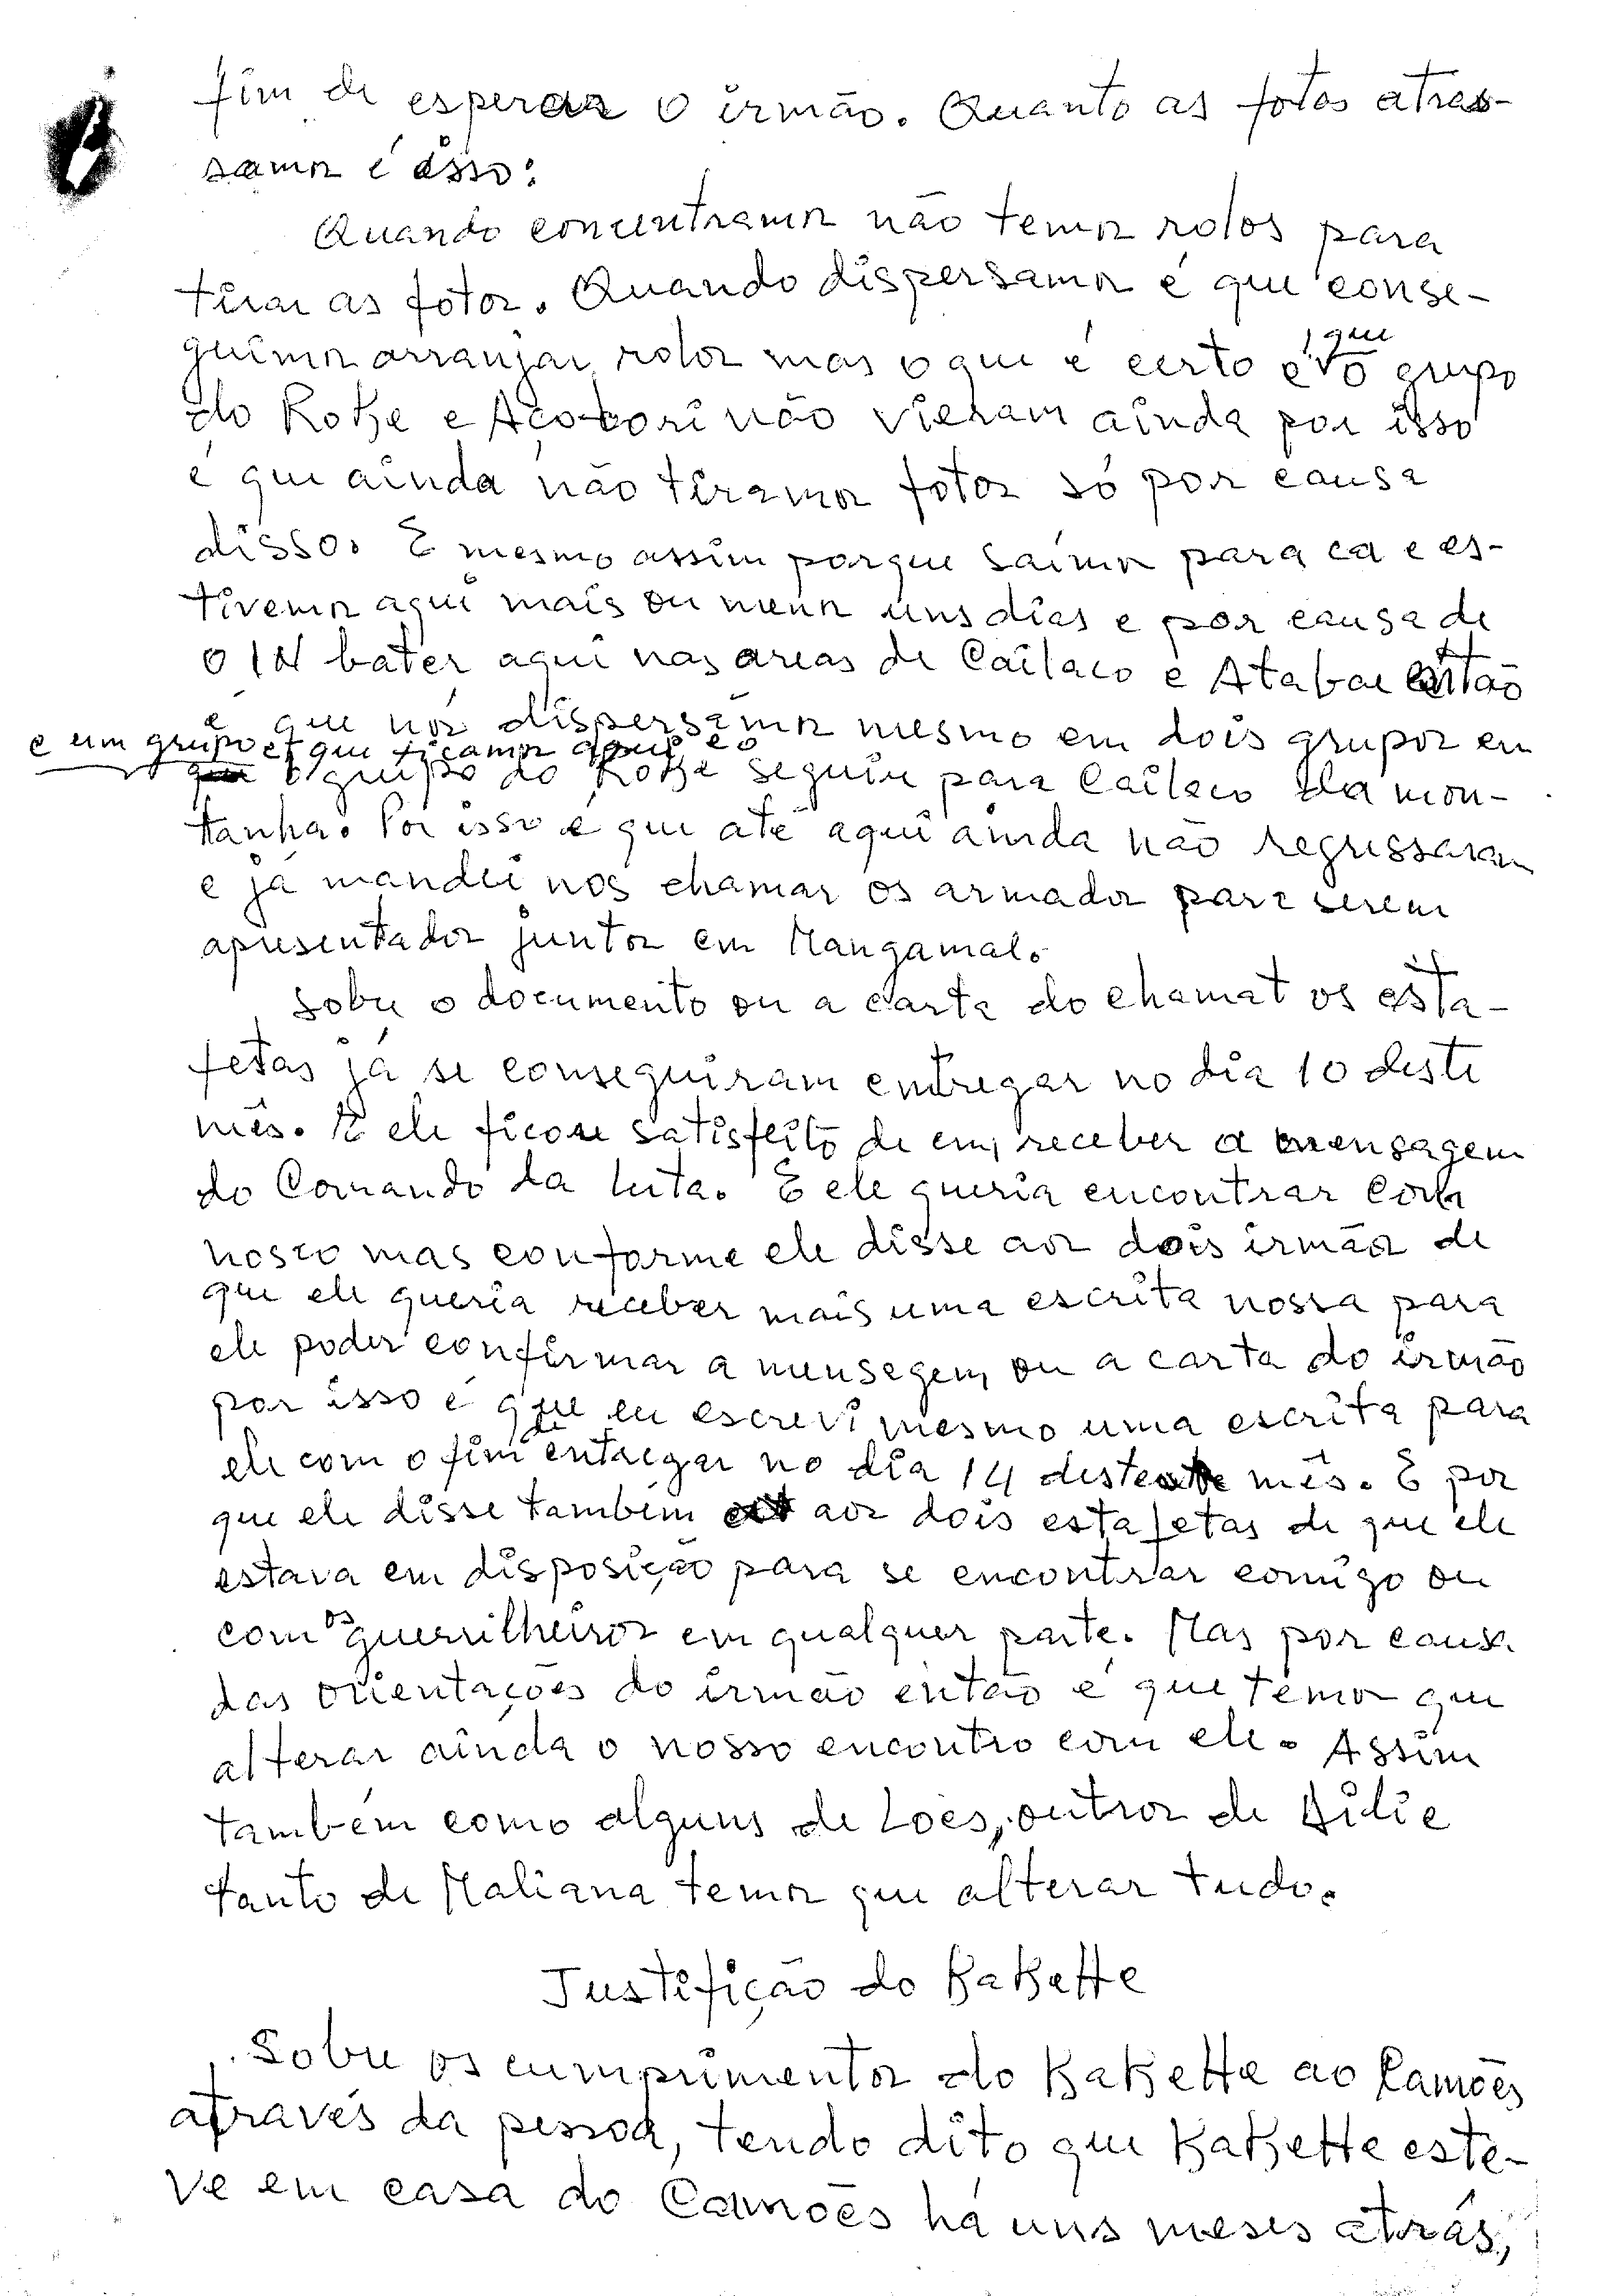 fim de esperar o irmão. Quanto as fotos atras-
samos é isso:
Quando concentramos não temos rolos para
tirar as fotos. Quando dispersamos é que conse-
guimos arranjar rolos mas o que é certo é que o grupo
do Rokee e Açobori não vieram ainda por isso
é que ainda não tiramos fotos só por causa
disso. E mesmo assim porque saimos para ca e es-
tivemos aqui mais ou menos uns dias e por causa de
o IN bater aqui nas areas de Cailaco e Atabae então
é que nós dispersamos mesmo em dois grupos em
e um grupo é que ficamos aqui e o
o grupo do seguiu para Cailaco da mon-
tanha. Por isso é que até aqui ainda não regressaram
e já mandei nos chamar os armados para serem
apresentados juntos em Mangamal.
Sobre o documento ou a carta do chamat os esta-
fetas já se conseguiram entregar no dia 10 deste
mês. E ele ficou satisfeito de em receber a mensagem
do Comando da luta. E ele queria encontrar com
nosco mas conforme ele disse aos dois irmãos de
que ele queria receber mais uma escrita nossa para
ele poder confirmar a mensagem ou a carta do irmão
por isso é que eu escrevi mesmo uma escrita para
ele com o fim de entregar no dia 14 deste mês. E por
que ele disse tambêm aos dois estafetas de que ele
estava em disposição para se encontrar comigo ou
com os guerrilheiros em qualquer parte. Mas por causa
das orientações do irmão então é que temos que
alterar ainda o nosso encontro com ele. Assim
tambêm como alguns de Loes, outros de Dili e
tanto de Maliana temos que alterar tudo.
Justificão do
Sobre os cumprimentos do ao Camões
através da pessoa, tendo dito que este-
ve em casa do Camões há uns meses atrás,